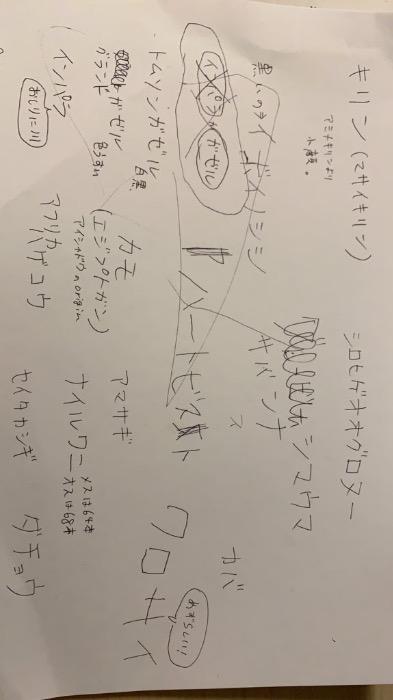 キリン(マサイキリン)
アミメキリンより
小農。
シロヒゲオオグロヌー
イボイノシシ
サバンナ
シマウマ
ス
カバ
インパラ
ガゼル
ハートビースト
クロサイ
めずらしい!
トムソンガゼル
白黒
グラント
ガゼル
インパラ
おしりに川
カモ
(エジプトガン)
アイシャドウのorigin
アマサギ
アフリカ
ハゲコウ
ナイルワニ
メスは64本
オスは68本
セイタカシギ
ダチョウ